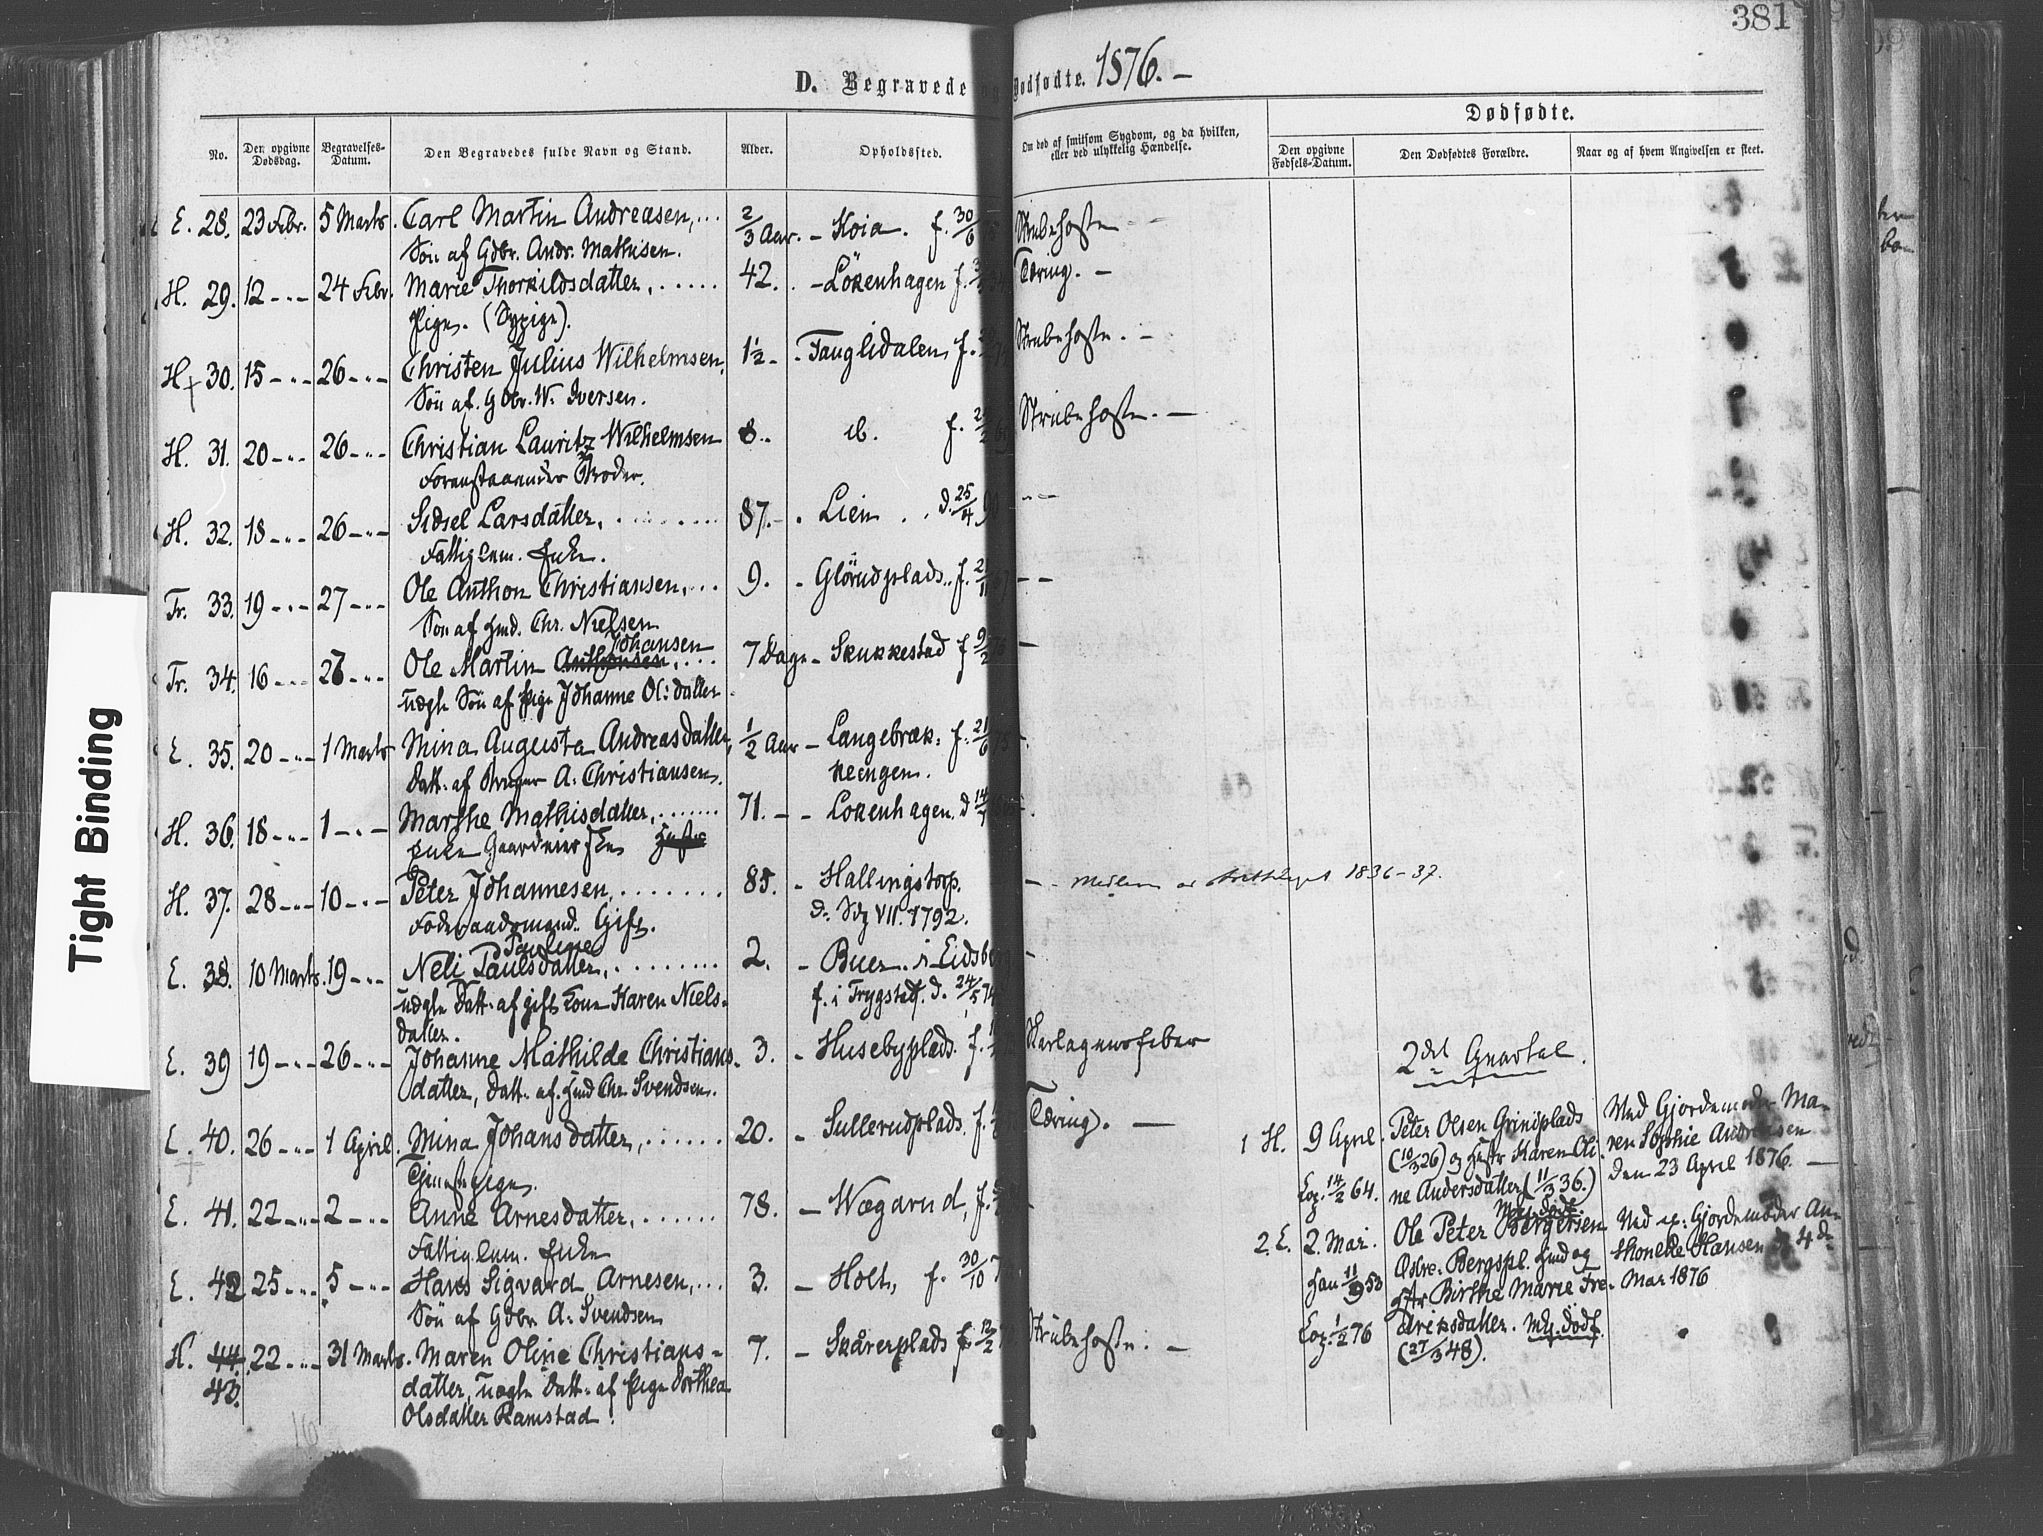 381
D. Begravede og Dødfødte. 1876. –
No.
Den opgivne Dødsdag.
Begravelses-Datum.
Den Begravedes fulde Navn og Stand.
Alder.
Opholdssted.
Om død af smitsom Sygdom, og da hvilken, eller ved ulykkelig Hændelse.
Dødfødte.
Den opgivne Fødsels-Datum.
Den Dødfødtes Forældre.
Naar og af hvem Angivelsen er skeet.
E. 28. 23 Febr. 5 Marts. Carl Martin Andreasen, ... 2/3 Aar. – Koia. f. 30/6 Strubehoste
Søn af Gdbr. Andr. Mathisen.
H. 29. 12 – " – 24 Febr. Marie Thorkildsdatter, ..... 42. – Lökenhagen f. Tæring. –
Pige. (Sypige).
H. 30. 15 – " – 26 – " – Christen Julius Wilhelmsen, 1½ – Fauglidalen f. Strubehoste. –
Søn af Gdbr. W. Iversen.
H. 31. 20 – " – 26 – " – Christian Lauritz Wilhelmsen 8. ib. f. Strubehoste. –
Foranstaaendes Broder.
H. 32. 18 – " – 26 – " – Sidsel Larsdatter, ..... 87. – Lien . . d. 25/4 90 – –
Fattiglem. Enke.
Tr. 33. 19 – " – 27 – " – Ole Anthon Christiansen, ... 9. – Glörudplads. f. – –
Søn af Hmd. Chr. Nielsen
Johansen
Tr. 34. 16 – " – 27 – " – Ole Martin Anthonsen, ... 7 Dage – Skukkestad f. 9/2 76 –
uægte Søn af Pige Johanne Ol: datter
E. 35. 20 – " – 1 Marts Mina Augusta Andreasdatter, 1/2 Aar – Langebræk: f. 21/6 75 –
Datt. af Bruger A: Christiansen. keengen.
H. 36. 18 – " – 1 – " – Marthe Mathisdatter, ....... 71. – – Lokenhagen. d 14/7
Enke Gaardeier
H. 37. 28 – " – 10 – " – Peter Johannesen, ....... 85. – Hallingstorp. – Medlem av Storthinget 1836–37.
Föderaadsmand. Gift. d. VII. 1792.
Pauline
E. 38. 10 Marts. 19 – " – Neli Paulsdatter, ........ 2. – Buer. i Eidsberg –
uægte Datt. af gift Kone Karen Niels- f. i Trygstad. d. 24/5 74
datter.
E. 39 19 – " – 26 – " – Johanne Mathilde Christians- 3. – Husebyplads. f. Skarlagensfeber
datter, Datt. af Hmd Chr. Svendsen.
E. 40. 26 – " – 1 April. Mina Johansdatter, ..... 20. – Sullerudplads. f. Tæring. –
Tjenestepige.
E. 41. 22 – " – 2 – " – Anne Arnesdatter, ...... 78. – Wægarud, f.
Fattiglem. Enke
E. 42 25 – " – 5 – " – Hans Sigvard Arnesen, ... 3. – Holt, f. 30/10 7
Søn af Gdbr A: Svendsen
H. 44. 22 – " – 31 Marts. Maren Oline Christians- 7. – Skårerplads f. 12/2 Strubehoste. –
43. datter, uægte Datt. af Pige Dorthea
Olsdatter Ramstad.
2det Qvartal.
1 H. 9 April. Peter Olsen Grindplads Ved Gjordemoder Ma-
(10/3 26) og Hustr Karen Oli- ren Sophie Andreasen
Eoz. 14/2 64. ne Andersdatter (11/3 36.) den 23 April 1876. –
Mg. Dødf.
2. E. 2. Mai. Ole Peter Bergersen Ved ex: Gjordemoder An-
Østre: Bergspl. Hmd og thonette Hansen d. 4de
Han 11/9 53 Hstr Birthe Marie Fre- Mai 1876
Eoz. 1/2 76 driksdatter. Mg. dødf.
(27/3 48).
16
Tight Binding